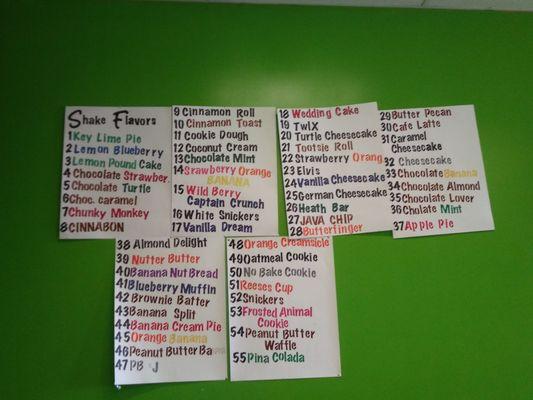 Shake Flavors
1 Key Lime Pie
2 Lemon Blueberry
3 Lemon Pound Cake
4 Chocolate Strawber
5 Chocolate Turtle
6 Choc. caramel
7 Chunky Monkey
8 CINNABON
9 Cinnamon Roll
10 Cinnamon Toast
11 Cookie Dough
12 Coconut Cream
13 Chocolate Mint
14 Strawberry Orange
BANANA
15 Wild Berry
Captain Crunch
16 White Snickers
17 Vanilla Dream
18 Wedding Cake
19 TwIX
20 Turtle Cheesecake
21 Tootsie Roll
22 Strawberry Orang
23 Elvis
24 Vanilla Cheesecake
25 German Cheesecake
26 Heath Bar
27 JAVA CHIP
28 Butterfinger
29 Butter Pecan
30 Cafe Latte
31 Caramel
Cheesecake
32 Cheesecake
33 Chocolate Banana
34 Chocolate Almond
35 Chocolate Lover
36 Cholate Mint
37 Apple Pie
38 Almond Delight
39 Nutter Butter
40 Banana Nut Bread
41 Blueberry Muffin
42 Brownie Batter
43 Banana Split
44 Banana Cream Pie
45 Orange Banana
46 Peanut Butter Ba
47 PB J
48 Orange Creamsicle
49 Oatmeal Cookie
50 No Bake Cookie
51 Reeses Cup
52 Snickers
53 Frosted Animal
Cookie
54 Peanut Butter
Waffle
55 Pina Colada